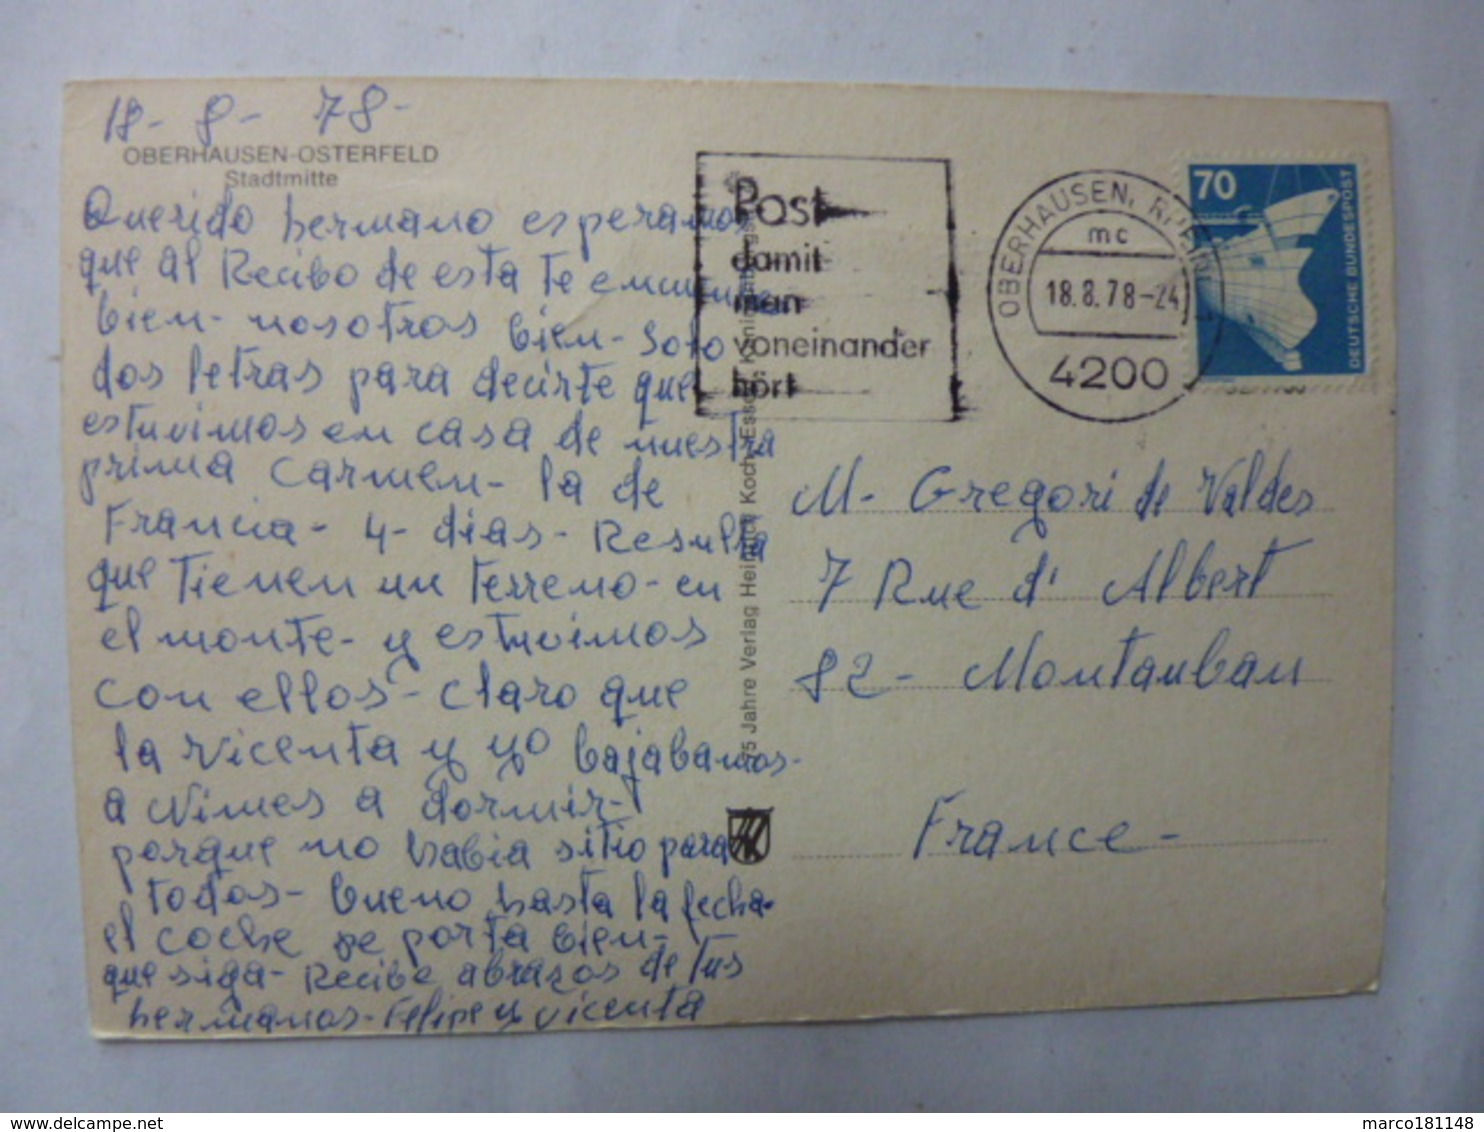 18- 8- 78-
OBERHAUSEN-OSTERFELD
Stadtmitte
Querido hermano esperamos
que al Recibo de esta te encuentres
bien- nosotros bien- solo
dos letras para decirte que
estuvimos en casa de nuestra
prima Carmen- la de
Francia- 4- dias- Resulta
que tienen un terreno- en
el monte- y estuvimos
con ellos- claro que
la vicenta y yo bajabamos-
a Nimes a dormir-
porque no habia sitio para
todos- bueno hasta la fecha-
el coche se porta bien-
que siga- Recibe abrazos de tus
hermanos- Felipe y vicenta
75 Jahre Verlag Heinrich Koch Essen
Post
damit
man
voneinander
hört
OBERHAUSEN, RHEINL
mc
18.8.78-24
4200
70
DEUTSCHE BUNDESPOST
M- Gregori de Valdes
7 Rue d' Albert
82- Montauban
France-
marco181148